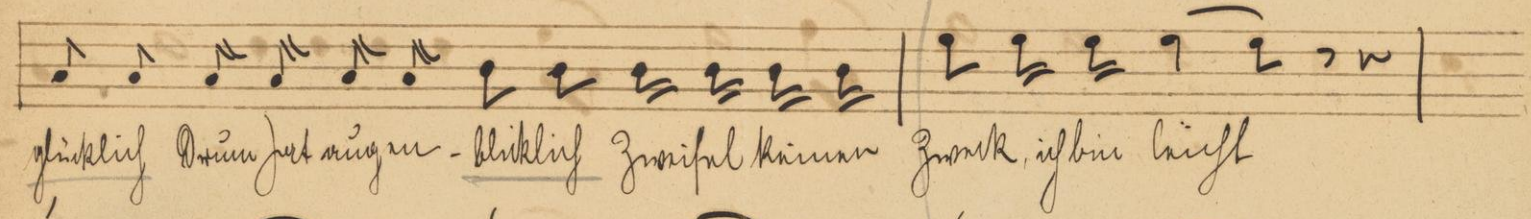 glücklich Drum hat augen - blicklich Zweifel keinen Zweck, ich bin leicht